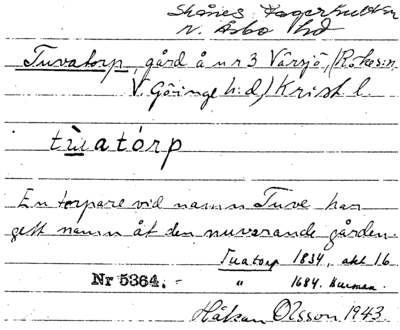 Skånes Fagerhult sn
N. Åsbo hd
Tuvatorp, gård å nr 3 Värsjö, (Röke sn
V. Göinge h:d,) Krist. l.
tùatórp
En torpare vid namn Tuve har
gett namn åt den nuvarande gården.
Tuatorp 1834, akt 16
Nr 5364. - " 1684. Burman.
Håkan Olsson 1943.